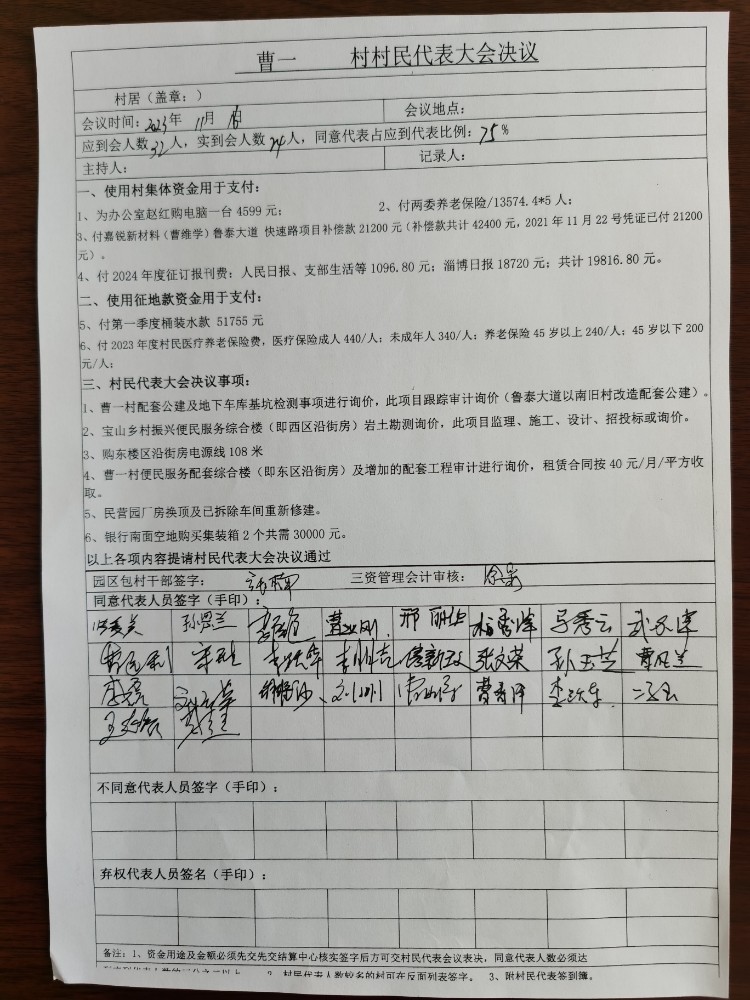 曹一 村村民代表大会决议
村居（盖章：）
会议时间：2023年 11月 日 会议地点：
应到会人数32人，实到会人数24人，同意代表占应到代表比例：75%
主持人： 记录人：
一、使用村集体资金用于支付：
1、为办公室赵红购电脑一台 4599 元； 2、付两委养老保险/13574.4*5 人；
3、付嘉锐新材料（曹维学）鲁泰大道 快速路项目补偿款 21200 元（补偿款共计 42400 元，2021 年 11 月 22 号凭证已付 21200
元）。
4、付 2024 年度征订报刊费：人民日报、支部生活等 1096.80 元；淄博日报 18720 元；共计 19816.80 元。
二、使用征地款资金用于支付：
5、付第一季度桶装水款 51755 元
6、付 2023 年度村民医疗养老保险费，医疗保险成人 440/人；未成年人 340/人；养老保险 45 岁以上 240/人；45 岁以下 200
元/人；
三、村民代表大会决议事项：
1、曹一村配套公建及地下车库基坑检测事项进行询价，此项目跟踪审计询价（鲁泰大道以南旧村改造配套公建）。
2、宝山乡村振兴便民服务综合楼（即西区沿街房）岩土勘测询价，此项目监理、施工、设计、招投标或询价。
3、购东楼区沿街房电源线 108 米
4、曹一村便民服务配套综合楼（即东区沿街房）及增加的配套工程审计进行询价，租赁合同按 40 元/月/平方收
取。
5、民营园厂房换顶及已拆除车间重新修建。
6、银行南面空地购买集装箱 2 个共需 30000 元。
以上各项内容提请村民代表大会决议通过
园区包村干部签字： 三资管理会计审核：
同意代表人员签字（手印）：
邢丽华 马秀云
张文荣 孙玉兰 曹凡兰
不同意代表人员签字（手印）：
弃权代表人员签名（手印）：
备注：1、资金用途及金额必须先交先交结算中心核实签字后方可交村民代表会议表决，同意代表人数必须达
2、村民代表人数较多的村可在反面列表签字。 3、附村民代表签到簿。